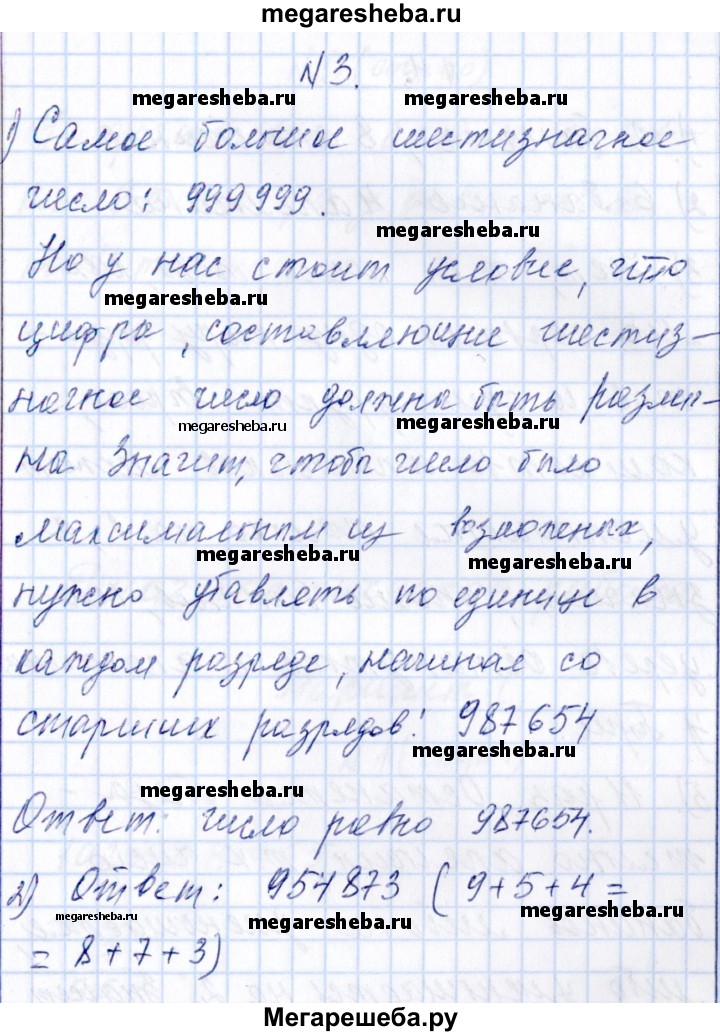 megaresheba.ru
№3.
megaresheba.ru megaresheba.ru
1) Самое большое шестизначное
число: 999999.
megaresheba.ru
Но у нас стоит условие, что
megaresheba.ru
цифра, составляющие шестиз-
начное число должна быть различ-
megaresheba.ru megaresheba.ru
на Значит, чтобы число было
максимальным из возможных,
megaresheba.ru megaresheba.ru
нужно убавлять по единице в
каждом разряде, начиная со
старших разрядов: 987654
megaresheba.ru
megaresheba.ru
Ответ: число равно 987654.
2) Ответ: 954873 (9+5+4=
megaresheba.ru megaresheba.ru megaresheba.ru
= 8+7+3)
Мегарешеба.ру